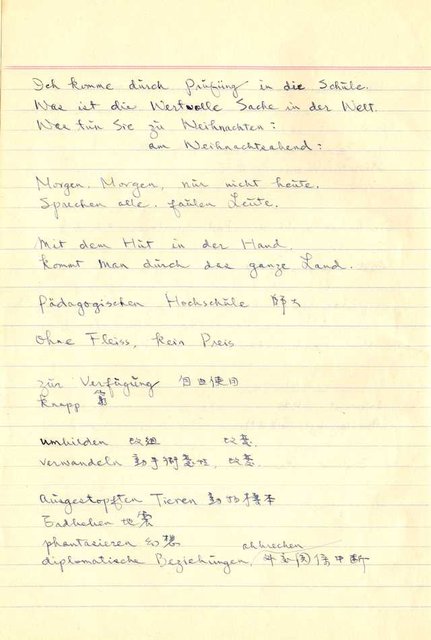 Ich komme durch Prüfung in die Schule.
Was ist die Wertvolle Sache in der Welt.
Was tun Sie zu Weihnachten:
am Weihnachtsabend:
Morgen. Morgen, nur nicht heute.
Sprechen alle. faulen Leute.
Mit dem Hut in der Hand.
kommt man durch das ganze Land.
Pädagogischen Hochschule 師大
Ohne Fleiss, kein Preis
zur Verfügung 自由使用
knapp
umbilden 改造 改意
verwandeln 動手術 改意.
Ausgestopften Tieren 動物標本
Erdbeben 地震
phantasieren 幻想
abbrechen
diplomatische Beziehungen, 外交関係中断